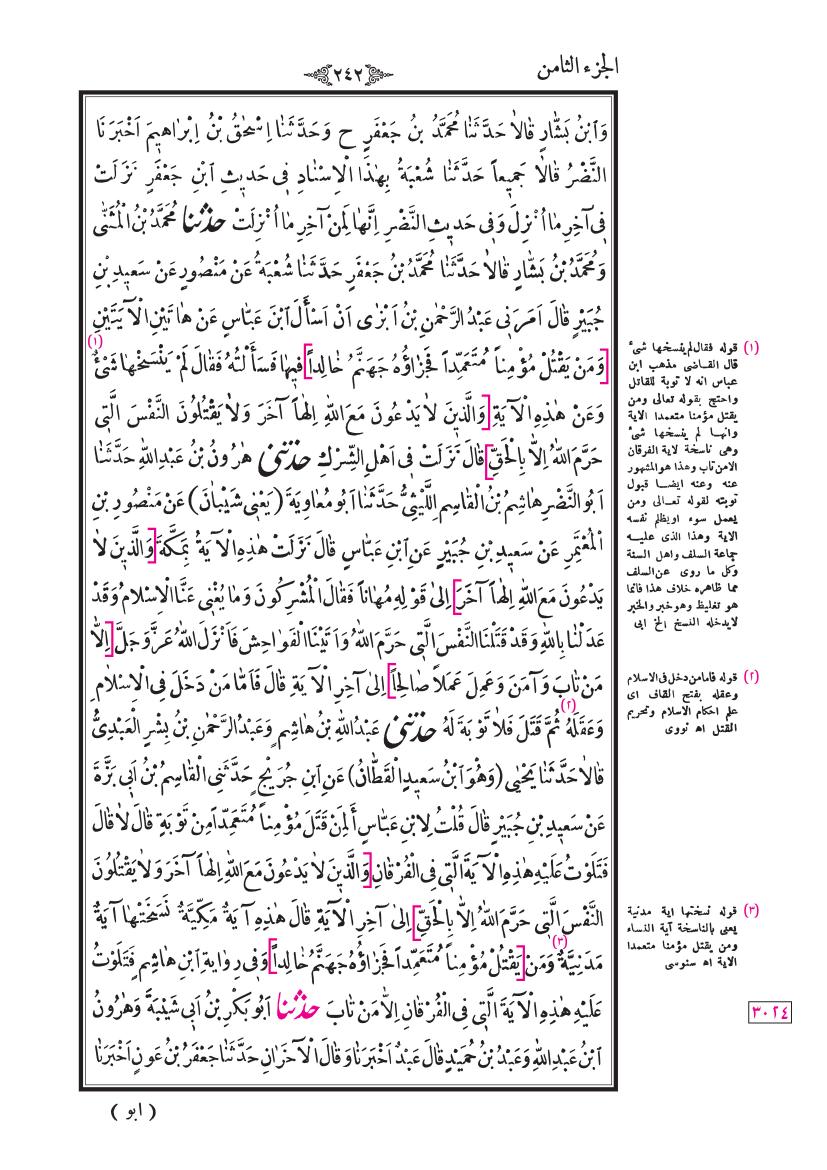 الجزء الثامن
٢٤٢
وَٱبْنُ بَشَّارٍ قَالَا حَدَّثَنَا مُحَمَّدُ بْنُ جَعْفَرٍ ح وَحَدَّثَنَا اِسْحٰقُ بْنُ اِبْرَاهِيمَ اَخْبَرَنَا
النَّضْرُ قَالَا جَمِيعاً حَدَّثَنَا شُعْبَةُ بِهٰذَا الْاِسْنَادِ فِى حَدِيثِ ابْنِ جَعْفَرٍ نَزَلَتْ
فِى آخِرِ مَا اُنْزِلَ وَفِى حَدِيثِ النَّضْرِ اِنَّهَا لَمِنْ آخِرِ مَا اُنْزِلَتْ حَدَّثَنَا مُحَمَّدُ بْنُ الْمُثَنّٰى
وَمُحَمَّدُ بْنُ بَشَّارٍ قَالَا حَدَّثَنَا مُحَمَّدُ بْنُ جَعْفَرٍ حَدَّثَنَا شُعْبَةُ عَنْ مَنْصُورٍ عَنْ سَعِيدِ بْنِ
جُبَيْرٍ قَالَ اَمَرَنِى عَبْدُ الرَّحْمٰنِ بْنُ اَبْزٰى اَنْ اَسْأَلَ ابْنَ عَبَّاسٍ عَنْ هَاتَيْنِ الْآيَتَيْنِ
[وَمَنْ يَقْتُلْ مُؤْمِناً مُتَعَمِّداً فَجَزَاؤُهُ جَهَنَّمُ خَالِداً] فِيهَا فَسَأَلْتُهُ فَقَالَ لَمْ يَنْسَخْهَا شَىْءٌ (١)
وَعَنْ هٰذِهِ الْآيَةِ [وَالَّذِينَ لَا يَدْعُونَ مَعَ اللهِ اِلٰهاً آخَرَ وَلَا يَقْتُلُونَ النَّفْسَ الَّتِى
حَرَّمَ اللهُ اِلَّا بِالْحَقِّ] قَالَ نَزَلَتْ فِى اَهْلِ الشِّرْكِ حَدَّثَنِى هٰرُونُ بْنُ عَبْدِ اللهِ حَدَّثَنَا
اَبُو النَّضْرِ هَاشِمُ بْنُ الْقَاسِمِ اللَّيْثِىُّ حَدَّثَنَا اَبُو مُعَاوِيَةَ (يَعْنِى شَيْبَانَ) عَنْ مَنْصُورِ بْنِ
الْمُعْتَمِرِ عَنْ سَعِيدِ بْنِ جُبَيْرٍ عَنِ ابْنِ عَبَّاسٍ قَالَ نَزَلَتْ هٰذِهِ الْآيَةُ بِمَكَّةَ [وَالَّذِينَ لَا
يَدْعُونَ مَعَ اللهِ اِلٰهاً آخَرَ] اِلٰى قَوْلِهِ مُهَاناً فَقَالَ الْمُشْرِكُونَ وَمَا يُغْنِى عَنَّا الْاِسْلَامُ وَقَدْ
عَدَلْنَا بِاللهِ وَقَدْ قَتَلْنَا النَّفْسَ الَّتِى حَرَّمَ اللهُ وَاَتَيْنَا الْفَوَاحِشَ فَاَنْزَلَ اللهُ عَزَّ وَجَلَّ [اِلَّا
مَنْ تَابَ وَآمَنَ وَعَمِلَ عَمَلاً صَالِحاً] اِلٰى آخِرِ الْآيَةِ قَالَ فَاَمَّا مَنْ دَخَلَ فِى الْاِسْلَامِ
وَعَقَلَهُ (٢) ثُمَّ قَتَلَ فَلَا تَوْبَةَ لَهُ حَدَّثَنِى عَبْدُ اللهِ بْنُ هَاشِمٍ وَعَبْدُ الرَّحْمٰنِ بْنُ بِشْرٍ الْعَبْدِىُّ
قَالَا حَدَّثَنَا يَحْيٰى (وَهُوَ ابْنُ سَعِيدٍ الْقَطَّانُ) عَنِ ابْنِ جُرَيْجٍ حَدَّثَنِى الْقَاسِمُ بْنُ اَبِى بَزَّةَ
عَنْ سَعِيدِ بْنِ جُبَيْرٍ قَالَ قُلْتُ لِابْنِ عَبَّاسٍ أَلِمَنْ قَتَلَ مُؤْمِناً مُتَعَمِّداً مِنْ تَوْبَةٍ قَالَ لَا قَالَ
فَتَلَوْتُ عَلَيْهِ هٰذِهِ الْآيَةَ الَّتِى فِى الْفُرْقَانِ [وَالَّذِينَ لَا يَدْعُونَ مَعَ اللهِ اِلٰهاً آخَرَ وَلَا يَقْتُلُونَ
النَّفْسَ الَّتِى حَرَّمَ اللهُ اِلَّا بِالْحَقِّ] اِلٰى آخِرِ الْآيَةِ قَالَ هٰذِهِ آيَةٌ مَكِّيَّةٌ نَسَخَتْهَا آيَةٌ
مَدَنِيَّةٌ (٣) وَمَنْ [يَقْتُلْ مُؤْمِناً مُتَعَمِّداً فَجَزَاؤُهُ جَهَنَّمُ خَالِداً] وَفِى رِوَايَةِ ابْنِ هَاشِمٍ فَتَلَوْتُ
عَلَيْهِ هٰذِهِ الْآيَةَ الَّتِى فِى الْفُرْقَانِ اِلَّا مَنْ تَابَ حَدَّثَنَا اَبُو بَكْرِ بْنُ اَبِى شَيْبَةَ وَهٰرُونُ
ابْنُ عَبْدِ اللهِ وَعَبْدُ بْنُ حُمَيْدٍ قَالَ عَبْدٌ اَخْبَرَنَا وَقَالَ الْآخَرَانِ حَدَّثَنَا جَعْفَرُ بْنُ عَوْنٍ اَخْبَرَنَا
( ابو )
(١) قوله فقال لم ينسخها شىء
قال القاضى مذهب ابن
عباس انه لا توبة للقاتل
واحتج بقوله تعالى ومن
يقتل مؤمنا متعمدا الاية
وانها لم ينسخها شىء
وهى ناسخة لاية الفرقان
الا من تاب وهذا هو المشهور
عنه وعنه ايضا قبول
توبته لقوله تعالى ومن
يعمل سوء او يظلم نفسه
الاية وهذا الذى عليه
جماعة السلف واهل السنة
وكل ما روى عن السلف
مما ظاهره خلاف هذا فانما
هو تغليظ وهو خبر والخبر
لا يدخله النسخ الخ ابى
(٢) قوله فاما من دخل فى الاسلام
وعقله بفتح القاف اى
علم احكام الاسلام وتحريم
القتل اه نووى
(٣) قوله نسختها اية مدنية
يعنى بالناسخة آية النساء
ومن يقتل مؤمنا متعمدا
الاية اه سنوسى
٣٠٢٤